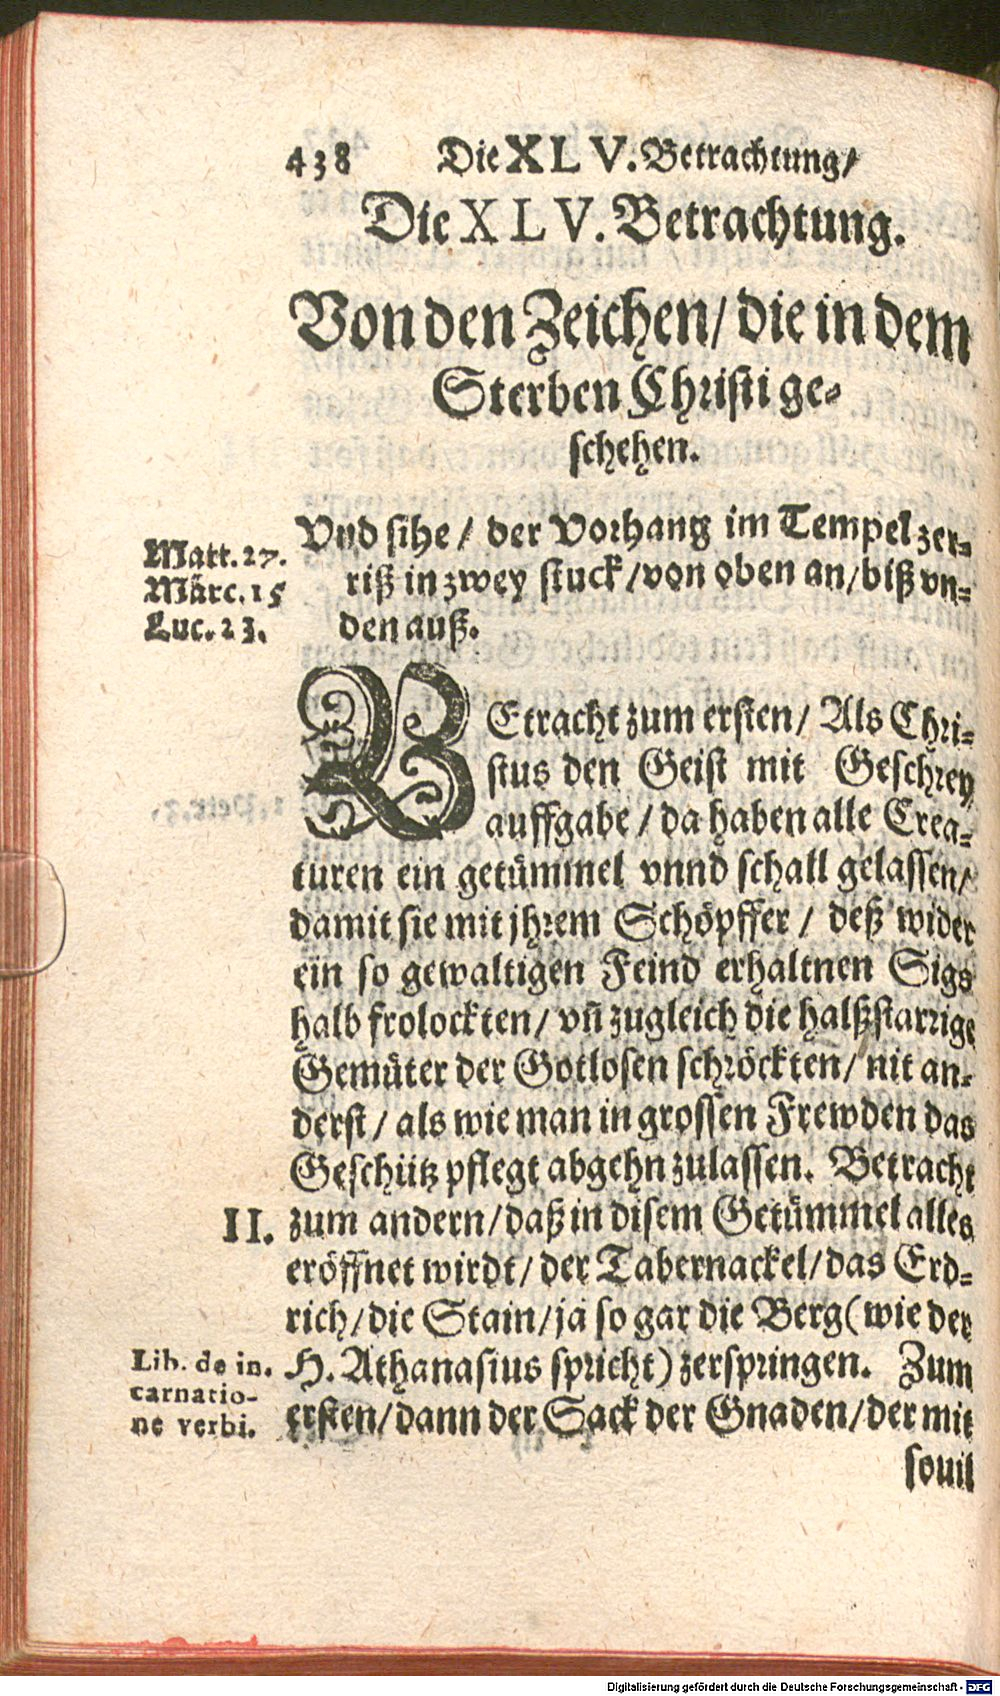 438 Die XLV. Betrachtung/
Die XLV. Betrachtung.
Von den Zeichen/ die in dem
Sterben Christi ge-
schehen.
Vnd sihe/ der Vorhang im Tempel zer-
riß in zwey stuck/von oben an/biß vn-
den auß.
Matt. 27.
Marc. 15
Luc. 23.
BEtracht zum ersten/ Als Chri-
stus den Geist mit Geschrey
auffgabe/da haben alle Crea-
turen ein getümmel vnnd schall gelassen/
damit sie mit jhrem Schöpffer/ deß wider
ein so gewaltigen Feind erhaltnen Sigs
halb frolockten/ vñ zugleich die halßstarrige
Gemüter der Gotlosen schröckten/ nit an-
derst/ als wie man in grossen Frewden das
Geschütz pflegt abgehn zulassen. Betracht
II. zum andern/daß in disem Getümmel alles
eröffnet wirdt/ der Tabernackel/das Erd-
rich/die Stain/ja so gar die Berg(wie der
H. Athanasius spricht) zerspringen. Zum
ersten/dann der Sack der Gnaden/der mit
Lib. de in-
carnatio-
ne verbi.
souil
Digitalisierung gefördert durch die Deutsche Forschungsgemeinschaft - DFG